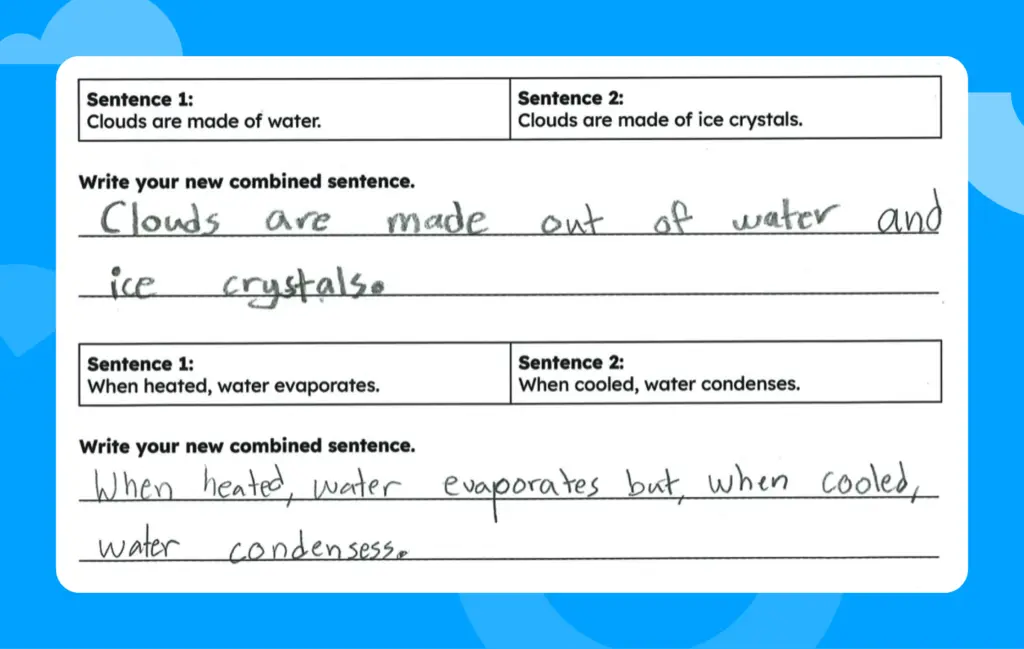 Sentence 1:
Clouds are made of water.
Sentence 2:
Clouds are made of ice crystals.
Write your new combined sentence.
Clouds are made out of water and
ice crystals.
Sentence 1:
When heated, water evaporates.
Sentence 2:
When cooled, water condenses.
Write your new combined sentence.
When heated, water evaporates but, when cooled,
water condensess.